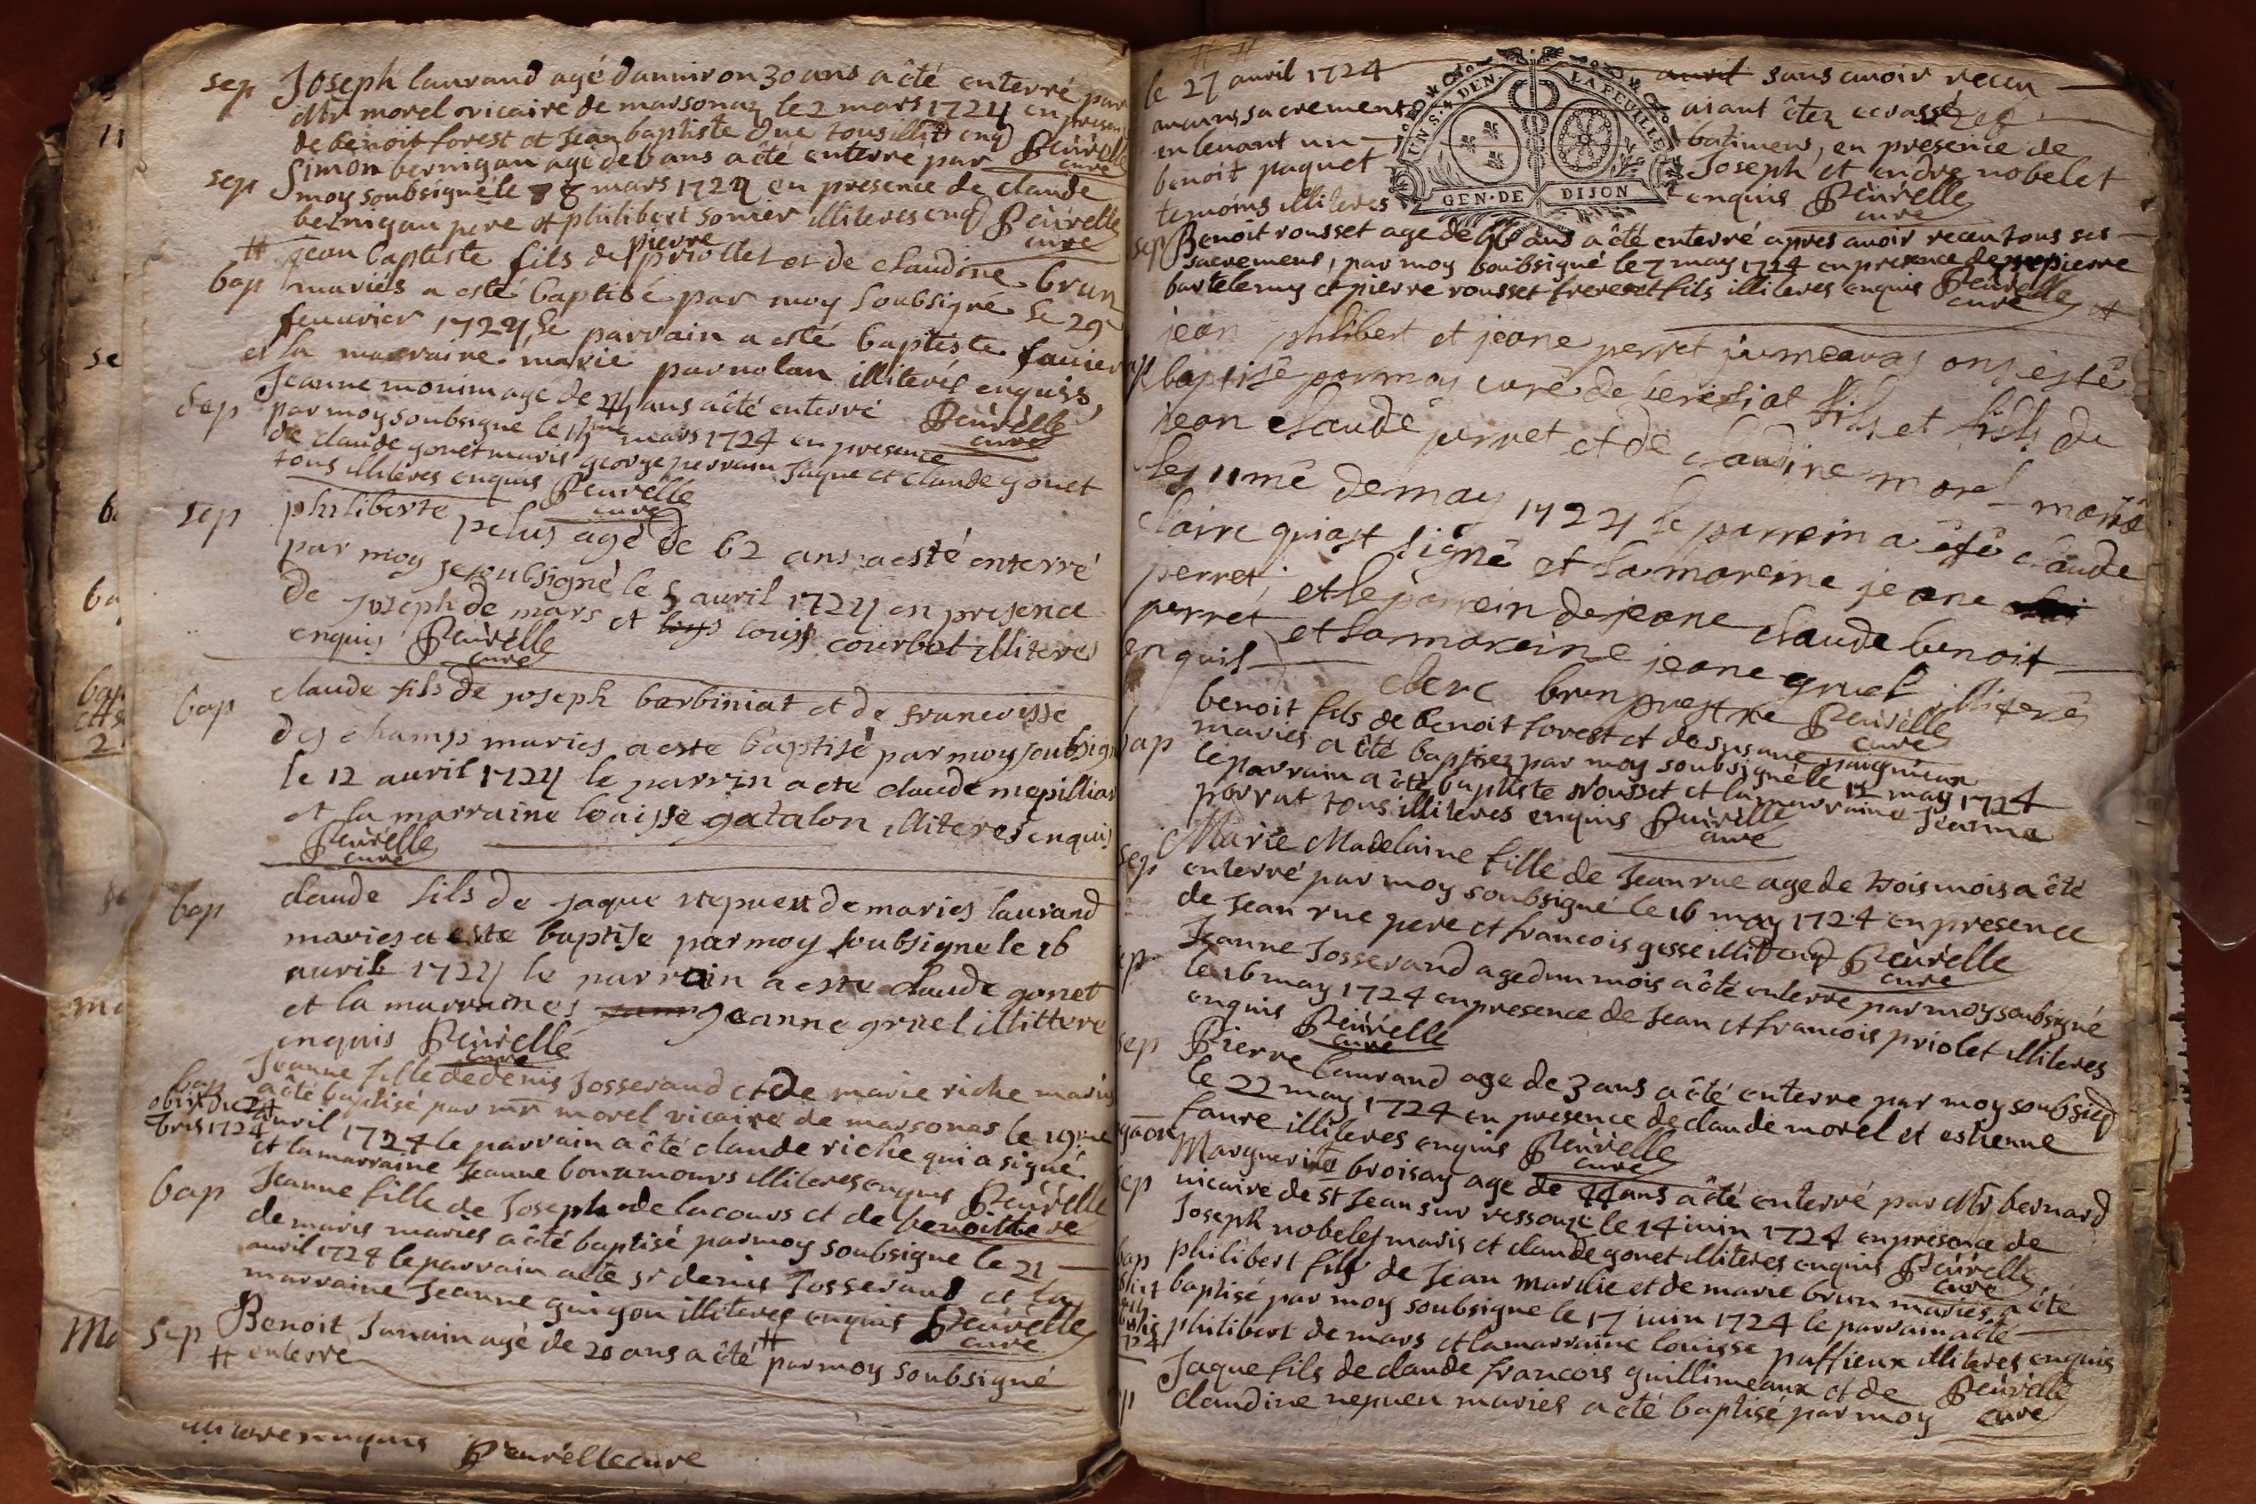 sep Joseph laurand agé danniron 30 ans a êté enterré par
Mr morel vicaire de marsonaz le 2 mars 1724 en presen
de benoit forest et Jean baptiste Due tous illit enq Peuvrelle
curé
sep Simon bernigau agé de 6 ans a êté enterré par
moy soubsigné le 8 mars 1724 en presence de claude
bernigau pere et philibert sonier illiteres enq Peuvrelle
curé
bap jean baptiste fils de pierre priollet et de claudine brun
mariés a esté baptisé par moy soubsigné le 29
feuurier 1724 le parrain a esté baptiste fauier
et la marraine marie parnolan illiterés enquis
Peuvrelle
curé
sep Jeanne monim age de 24 ans a êté enterré
par moy soubsigne le 11 me mars 1724 en presence
de claude gonet maris george perraun Jaque et claude gonet
tous illitéres enquis Peuvrelle
curé
sep philiberte pelus agé de 62 ans a esté enterré
par moy je soubsigné le 5 auril 1724 en presence
de joseph de mars et louis courbet illiteres
enquis Peuvrelle
curé
bap claude fils de joseph barbiniat et de francoisse
des champs maries a este baptisé par moy soubsign
le 12 auril 1724 le parrin a ete claude mepilliat
et la marraine louisse gatalon illiteres enquis
Peuvrelle
curé
bap claude fils de jaque nepueu et de maries laurand
maries a este baptise par moy soubsigne le 16
auril 1724 le parrain a este claude gonet
et la marraines jeanne gruel illittere
enquis Peuvrelle
curé
bap Jeanne fille de denis Josserand et de marie riche mariés
a êté baptisé par mr morel vicaire de marsonas le 19me
auril 1724 le parrain a êté claude riche qui a signé
et la marraine Jeanne bonamours illiteres enquis Peuvrelle
obiit du 24
bris 1724
bap Jeanne fille de Joseph de lacours et de benoitte re
de maris maries a êté baptisé par moy soubsigne le 21
auril 1724 le parrain a eté sr denis Josserand et la
marraine Jeanne guigon illiteres enquis Peuvrelle
curé
sep Benoit Janain agé de 20 ans a êté # par moy soubsigné
# enterre
enquis Peuvrelle curé
le 27 auril 1724 sans auoir receu
aucuns sacrements aiant êtez ecrassé
en leuant un batimens, en presence de
benoit paquet Joseph et andre nobelet
temoins illiteres enquis Peuvrelle
curé
UN S. 4 DEN. LA FEUILLE
GEN. DE DIJON
sep Benoit rousset age de ans a êté enterré apres auoir receu tous ses
sacremens, par moy soubsigné le 7 may 1724 en presence de pierre
bartelemy et pierre rousset frere et fils illiteres enquis Peuvrelle
curé
jean philibert et jeane perret jumeaux ons esté
baptisé par moy curé de fils et fille de
jean claude perret et de claudine morel marié
le 11 me de may 1724 le parrein a été claude
claire qui a signé et la mareine jeane
perret et le parrein de jeane claude benoit
perret et la mareine jeane gruel illiteré
enquis clerc brun prestre Peuvrelle
curé
bap benoit fils de benoit forest et de susane
maries a êté baptisez par moy soubsigné le 12 may 1724
le parrain a êté baptiste rousset et la marraine Jeanne
perrat tous illiteres enquis Peuvrelle
curé
sep Marie Madelaine fille de Jean rue age de trois mois a êté
enterré par moy soubsigné le 16 may 1724 en presence
de Jean rue pere et francois gesse illit enq Peuvrelle
curé
Jeanne Josserand age dun mois a êté enterre par moy soubsigné
le 16 may 1724 en presence de Jean et francois priolet illiteres
enquis Peuvrelle
curé
sep Pierre laurand age de 3 ans a êté enterre par moy soubsig
le 22 may 1724 en presence de claude morel et estienne
faure illiteres enquis Peuvrelle
curé
sep Marguerite broisay age de 44 ans a êté enterré par Mr bernard
uicaire de st Jean sur ressouze le 14 iuin 1724 en presence de
Joseph nobelet maris et claude gonet illiteres enquis Peuvrelle
curé
bap philibert fils de Jean marilie et de marie brun mariés a êté
baptisé par moy soubsigne le 17 iuin 1724 le parrain a êté
philibert de mars et la marraine louisse puffieux illiteres enquis
Peuvrelle
curé
Jaque fils de claude francois guillimeaux et de
claudine nepueu mariés a êté baptisé par moy